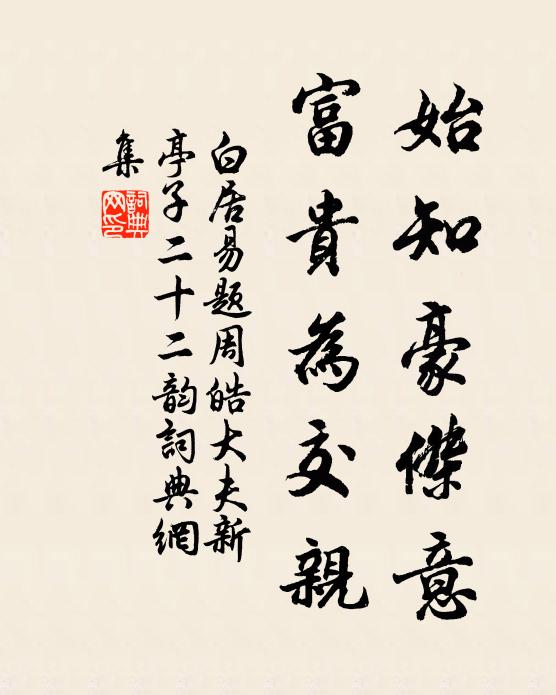 始知豪傑意
富貴為交親
白居易題周皓大夫新
亭子二十二韵詞典網
集
詞典
网印